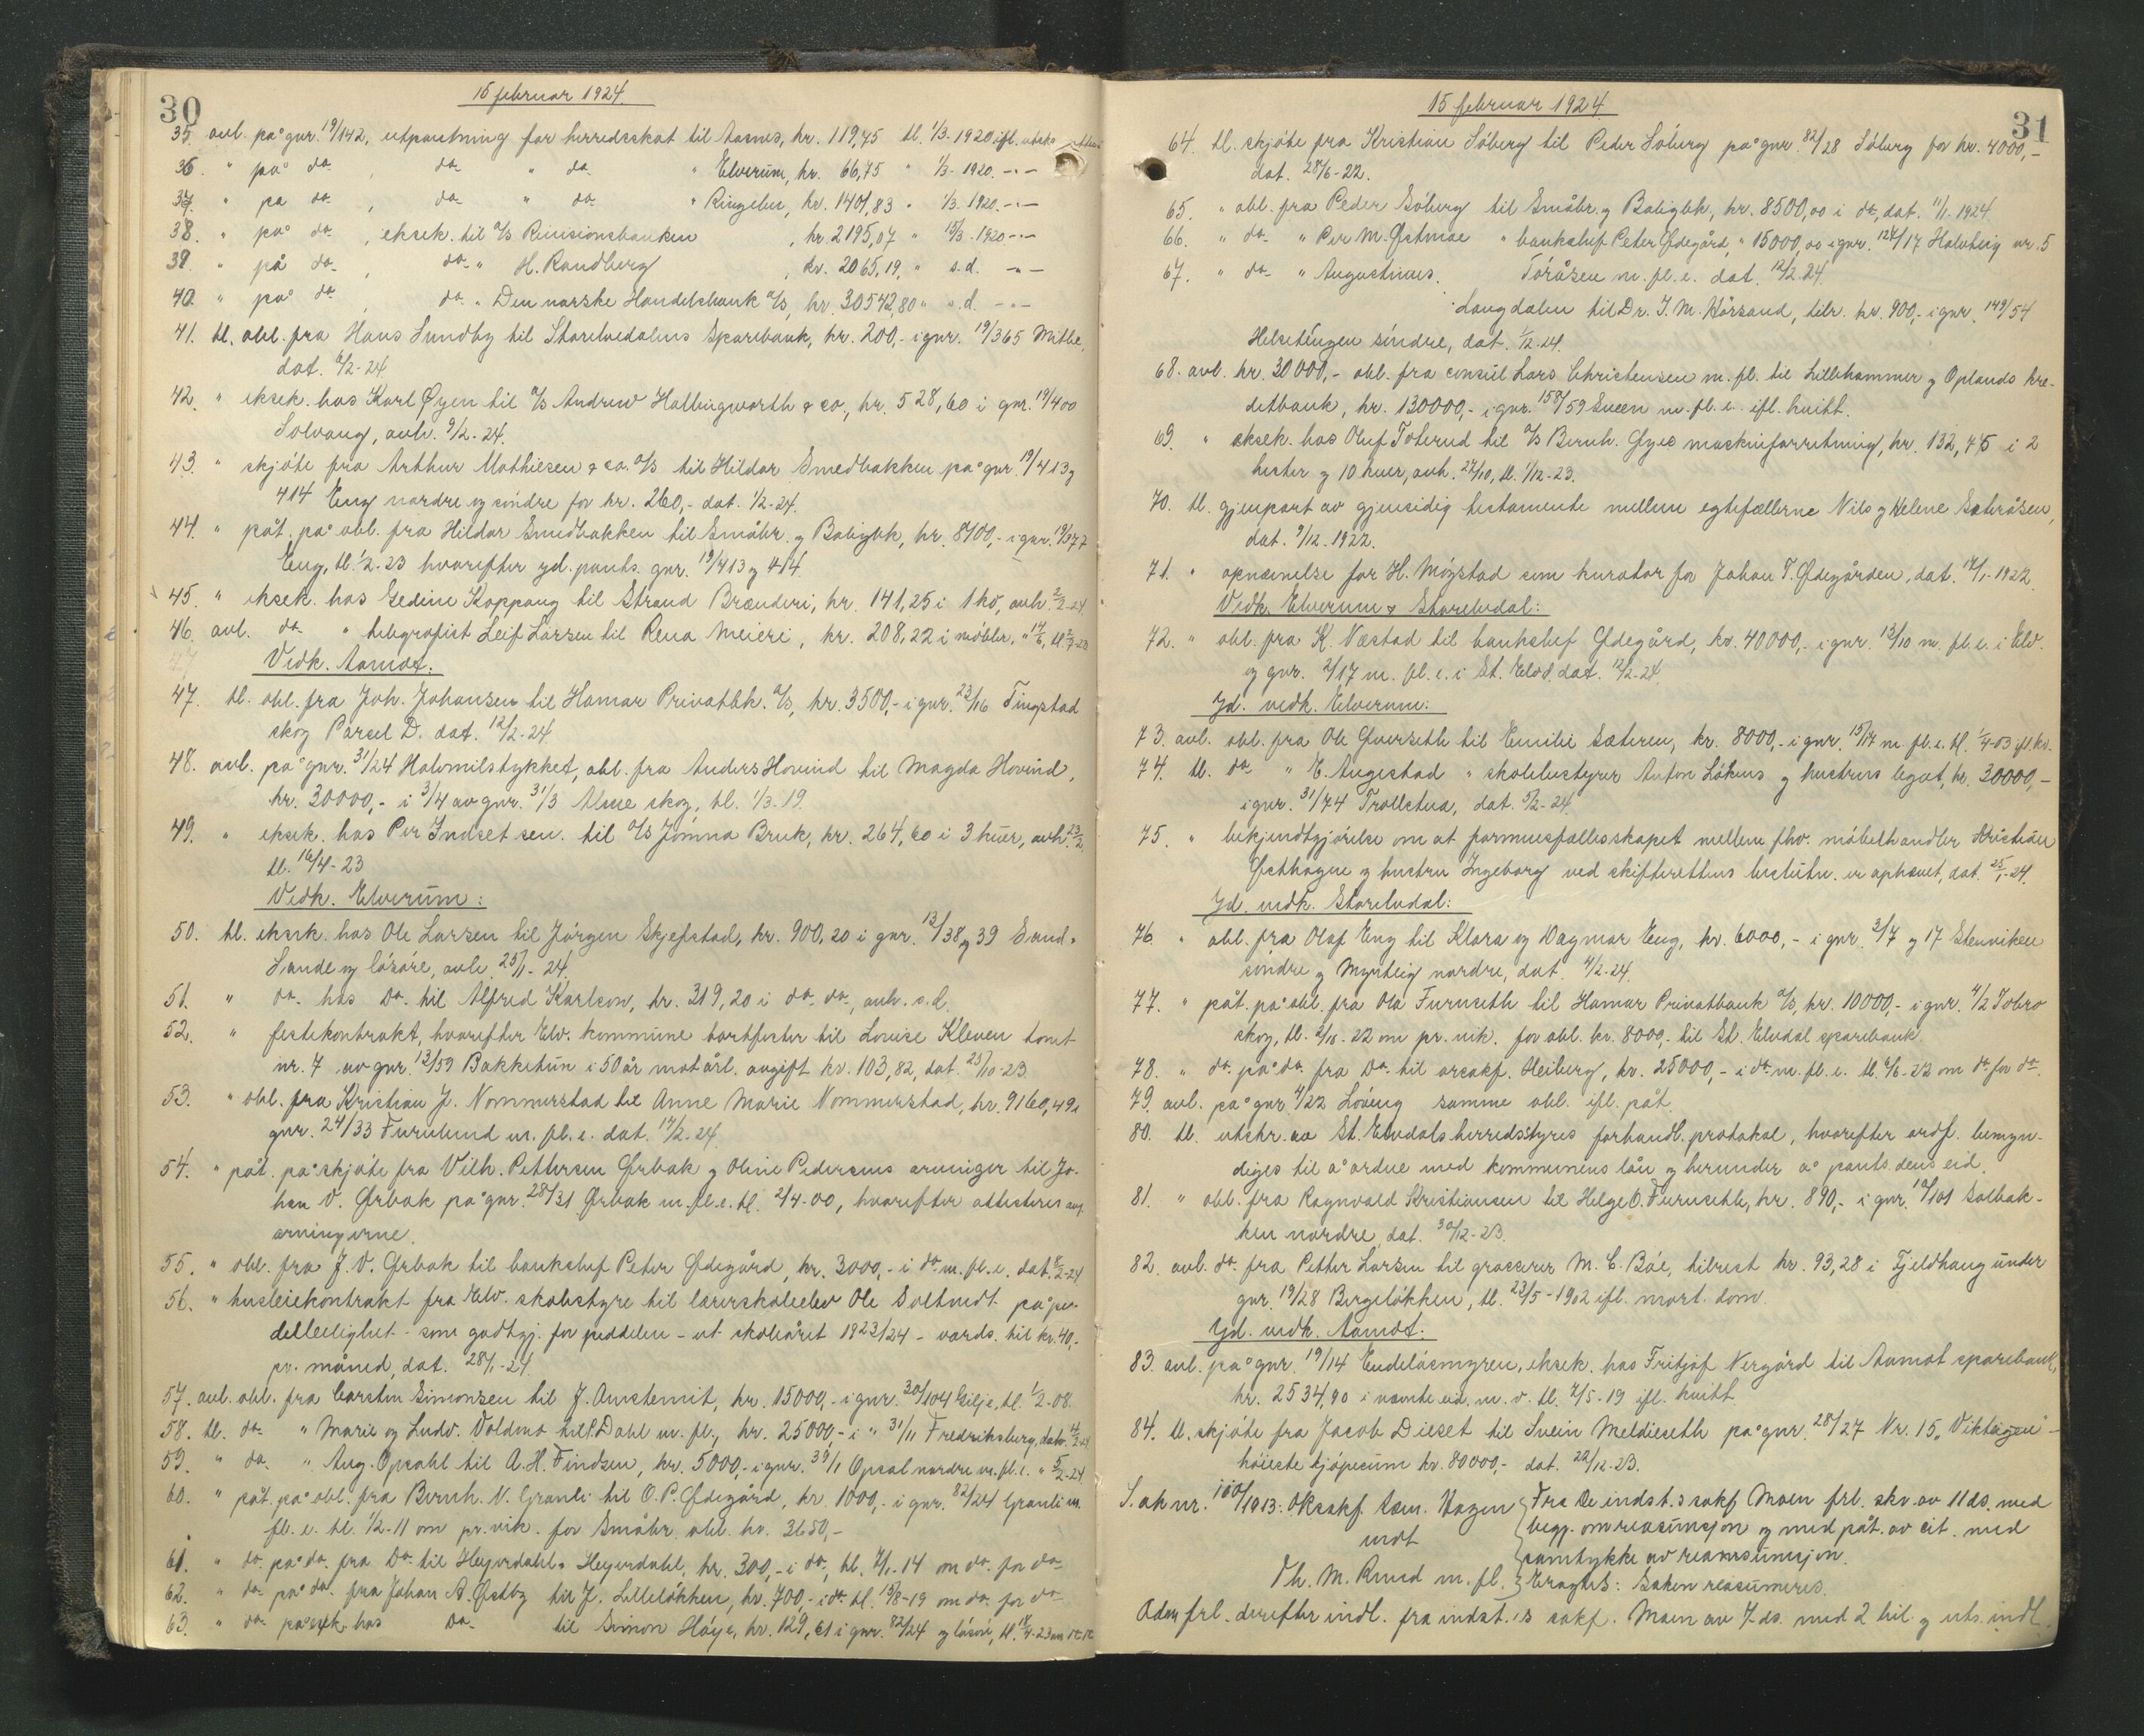 30
15 februar 1924.
35. avl. på gnr. 19/142, utpantning for herredsskat til Aasnes, kr. 119,45 tl. 1/3-1920 ifl.
36. " på do. , do. " do. " Elverum, kr. 66,75 " 1/3-1920. -"-
37. " på do. , do. " do. " Ringebu, kr. 1401,83 " 1/3-1920. -"-
38. " på do. , eksek. til A/S Revisionsbanken , kr. 2195,07 " 15/3-1920 -"-
39. " på do. , do. " H. Randberg , kr. 2065,19, " s.d. -"-
40. " på do. , do. " Den norske Handelsbank A/S, kr. 30542,80 " s.d. -"-
41. tl. obl. fra Hans Lundby til Storelvedalens Sparebank, kr. 200,- i gnr. 19/365 Mitbe,
dat. 6/2-24
42. " eksek. hos Karl Øyen til A/S Andrew Hollingworth & co., kr. 528,60 i gnr. 19/400
Solvang, avh. 9/2-24.
43. " skjøte fra Arthur Mathiesen & co. A/S til Hildar Smedbakken på gnr. 19/413 og
414 Eng nordre og søndre for kr. 260,- dat. 1/2-24.
44. " påt. på obl. fra Hildar Smedbakken til Småbr. og Boligbk, kr. 8400,- i gnr. 19/377
Eng, tl. 1/2-23 hvorefter yd. pants. gnr. 19/413 og 414.
45. " eksek. hos Gedine Koppang til Strand Brænderi, kr. 141,25 i 1 ko, avh. 2/2-24
46. avl. do. " telegrafist Leif Larsen til Rena Meieri, kr. 208,22 i møbler, " 14/6, tl. 2/7-23
Vedk. Aamot:
47. tl. obl. fra Joh. Johansen til Hamar Privatbk. A/S, kr. 3500,- i gnr. 23/16 Tingstad
skog Parsel D. dat. 12/2-24.
48. avl. på gnr. 31/24 Halvmilstykket, obl. fra Anders Hovind til Magda Hovind,
kr. 30000,- i 3/4 av gnr. 31/3 Alme skog, tl. 1/3-19.
49. " eksek. hos Per Indset sen. til A/S Jømna Bruk, kr. 264,60 i 3 kuer, avh. 23/2
tl. 16/4-23
Vedk. Elverum:
50. tl. eksek. hos Ole Larsen til Jørgen Skjefstad, kr. 900,20 i gnr. 13/38 og 39 Sand-
Lunde og løsøre, avh. 25/1-24.
51. " do. hos do. til Alfred Karlson, kr. 319,20 i do. do., avh. s.d.
52. " festekontrakt, hvorefter Elv. kommune bortfester til Lovise Kleven tomt
nr. 7 av gnr. 13/59 Bakketun i 50 år mot årl. avgift kr. 103,82, dat. 23/10-23
53. " obl. fra Kristian J. Nommerstad til Anne Marie Nommerstad, kr. 9160,49 i
gnr. 24/33 Furulund m. fl. e. dat. 14/2-24.
54. " påt. på skjøte fra Vilh. Pettersen Ørbak og Oline Pedersens arvinger til Jo-
han V. Ørbak på gnr. 28/31 Ørbak m. fl. e. tl. 2/4-00, hvorefter attesteres ang.
arvingerne.
55. " obl. fra J. V. Ørbak til bankchef Peter Ødegård, kr. 3000,- i do. m. fl. e. dat. 8/2-24
56. " husleiekontrakt fra Elv. skolestyre til lærerskoleelev Ole Soltvedt på pe-
delleilighet - som godtgj. for peddelen - ut skoleåret 1923/24 - værds. til kr. 40,-
pr. måned, dat. 28/1-24.
57. avl. obl. fra Carsten Simonsen til J. Amstemit, kr. 15000,- i gnr. 30/104 Gilje, tl. 1/2-08.
58. tl. do. " Marie og Ludv. Voldmo til P. Dahl m. fl., kr. 25000,- i " 31/11 Fredriksberg, dat. 4/2-24
59. " do. " Aug. Opsahl til A. H. Findsen, kr. 5000,- i gnr. 39/1 Opsal nordre m. fl. e. " 5/2-24
60. " påt. på obl. fra Bernh. N. Granli til O. P. Ødegård, kr. 1000,- i gnr. 82/24 Granli m.
fl. e. tl. 1/2-11 om pr. vik. for Småbr. obl. kr. 3650,-
61. " do. på do. fra do. til Heyerdahl & Heyerdahl, kr. 300,- i do., tl. 2/1-14 om do. for do.
62. " do. på do. fra Johan A. Østby til J. Lilleløkken, kr. 700,- i do. tl. 15/8-19 om do. for do.
63. " do. på eksek. hos do. til Simon Høye, kr. 129,61 i gnr. 82/24 og løsøre, tl. 18/4-23 om do. do.
31
15 februar 1924.
64. tl. skjøte fra Kristian Søberg til Peder Søberg på gnr. 82/28 Søberg for kr. 4000,-
dat. 28/6-22.
65. " obl. fra Peder Søberg til Småbr. og Boligbk, kr. 8500,00 i do., dat. 11/1-1924.
66. " do. " Per M. Østmoe " bankchef Peter Ødegård, " 15000,00 i gnr. 124/17 Halvberg nr. 5
67. " do. " Augustinus Toråsen m. fl. e. dat. 12/2-24.
Langdalen til Dr. J. M. Hørsand, tilr. kr. 900,- i gnr. 149/54
Helsetengen søndre, dat. 1/2-24.
68. avl. kr. 30000,- obl. fra consul Lars Christensen m. fl. til Lillehammer og Oplands kre-
detbank, kr. 130000,- i gnr. 158/59 Sveen m. fl. e. ifl. kvitt.
69. " eksek. hos Oluf Toterud til A/S Bernh. Gyes maskinforretning, kr. 132,45 i 2
hester og 10 kuer, avh. 27/10, tl. 1/12-23.
70. tl. gjenpart av gjensidig testamente mellem egtefællerne Nils og Helene Sæteråsen,
dat. 9/12-1922.
71. " opnævnelse for H. Møystad som kurator for Johan T. Ødegården, dat. 17/1-1922
Vedk. Elverum & Storelvdal:
72. " obl. fra K. Næstad til bankchef Ødegård, kr. 40000,- i gnr. 13/10 m. fl. e. i Elv.
og gnr. 2/17 m. fl. e. i St. Elvd. dat. 12/2-24.
Yd. vedk. Elverum:
73. avl. obl. fra Ole Gverseth til Emilie Sæteren, kr. 8000,- i gnr. 15/17 m. fl. e. tl. 1/4-03 ifl. kv.
74. tl. do. " E. Angestad " skolebestyrer Anton Løkens og hustrus legat, kr. 30000,-
i gnr. 31/74 Trollstua, dat. 5/2-24.
75. " bekjendtgjørelse om at formuesfællesskapet mellem fhv. møbelhandler Kristian
Østhagne og hustru Ingeborg ved skifterettens beslutn. er ophævet, dat. 25/1-24.
Yd. vedk. Storelvdal:
76. " obl. fra Olaf Eng til Klara og Dagmar Eng, kr. 6000,- i gnr. 3/7 og 17 Stenviken
søndre og Myrteig nordre, dat. 4/2-24.
77. " påt. på obl. fra Ola Furuseth til Hamar Privatbank A/S, kr. 10000,- i gnr. 4/2 Tobro
skog, tl. 2/10-22 om pr. vik. for obl. kr. 8000,- til St. Elvdal sparebank
78. " do. på do. fra do. til orsakf. Heiberg, kr. 25000,- i do. m. fl. e. tl. 6/6-22 om do. for do.
79. avl. på gnr. 4/22 Løveng samme obl. ifl. påt.
80. tl. utskr. av St. Elvdals herredsstyres forhandl. protokol, hvorefter ordf. bemyn-
diges til å ordne med kommunens lån og herunder å pants. dens eid.
81. " obl. fra Ragnvald Kristiansen til Helge O. Furuseth, kr. 890,- i gnr. 10/101 Solbak-
ken nordre, dat. 30/12-23.
82. avl. do. fra Petter Larsen til grosserer M. C. Bøe, tilrest kr. 93,28 i Fjeldhaug under
gnr. 19/28 Bergeløkken, tl. 23/5-1902 ifl. mort. dom.
Yd. vedk. Aamot:
83. avl. på gnr. 19/14 Endeløsmyren, eksek. hos Fritjof Nergård til Aamot sparebank,
kr. 2534,90 i nævnte eid. m. v. tl. 7/5-19 ifl. kvitt.
84. tl. skjøte fra Jacob Dieset til Svein Meldieseth på gnr. 28/27 Nr. 15, Viktagen -
høieste kjøpesum kr. 80000,- dat. 22/12-23.
S. ak nr. 100/1913: Oksakf. Asm. Hagen
mot
Th. M. Ruud m. fl.
Fra de indst.s sakf. Moen frl. skv. av 11 ds. med
begj. om reasumsjon og med påt. av cit. med
samtykke av reasumsjon.
Eragtes: Saken reasumeres.
Odem frl. derefter indl. fra indst.'s sakf. Moen av 7 ds. med 2 bil. og uts. indl.